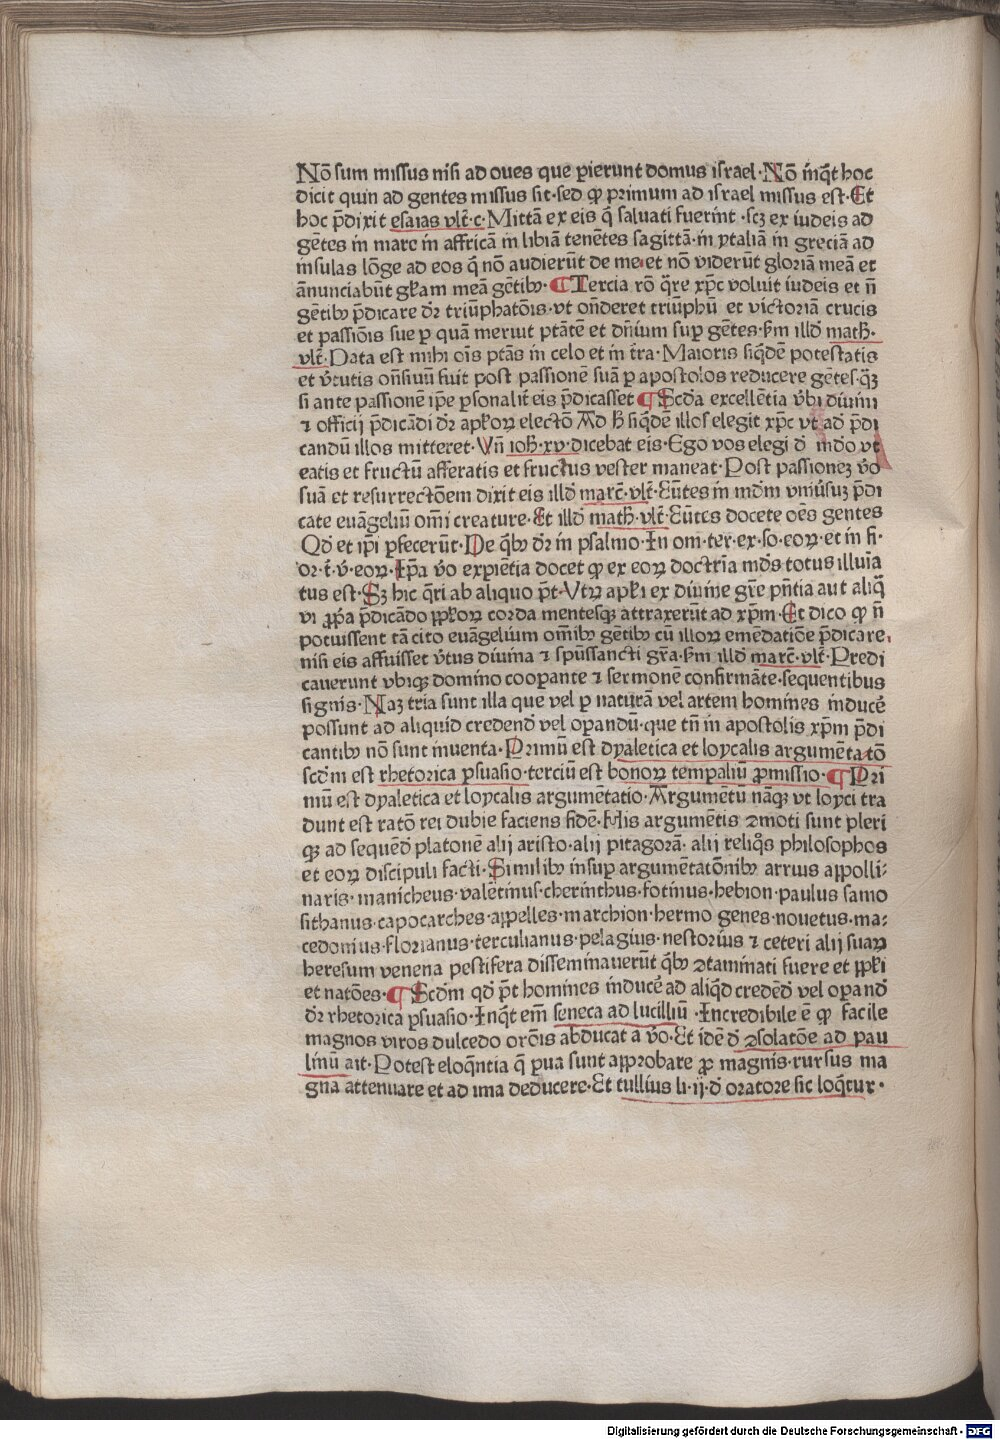 Nō sum missus nisi ad oues que perierunt domus israel·Nō īnqͭ hoc
dicit quin ad gentes missus sit·sed ꝙ primum ad israel missus est·Et
hoc p̄dixit esaias vlt̄·c·Mittā ex eis q̄ saluati fuerint ·scꝫ ex iudeis ad
gētes in mare in affricā in libiā tenētes sagittā·in ytaliā in greciā ad
insulas lōge ad eos q̄ nō audierūt de me·et nō viderūt gloriā meā et
ānunciabūt gl̄iam meā gētibꝰ·¶Tercia rō q̄re xp̄c voluit iudeis et n̄
gētibꝰ p̄dicare dr̄ triūphatōis·vt on̄deret triūphū et victoriā crucis
et passiōis sue ꝑ quā meruit ptātē et dn̄ium suꝑ gētes·sm̄ illd̄ math̄·
vlt̄·Data est mihi oīs ptās in celo et in t̄ra·Maioris siqͥdē potestatis
et v̄tutis on̄siuū fuit post passionē suā ꝑ apostolos reducere gētes·qͣꝫ
si ante passionē ip̄e ꝑsonalit̄ eis p̄dicasset ¶Scd̄a excellētia v̄bi diuini
⁊ officij p̄dicādi dr̄ apl̄oꝝ electō Ad h̄ siqͥdē illos elegit xp̄c vt ad p̄di
candū illos mitteret·Vn̄ ioh̄·xv·dicebat eis·Ego vos elegi d̄ mūdo vt
eatis et fructū afferatis et fructus vester maneat·Post passioneꝫ v̄o
suā et resurrectōem dixit eis illd̄ marc̄·vlt̄·Eūtes in mdm̄ vniūsuꝫ p̄di
cate euāgeliū om̄i creature·Et illd̄ math̄·vlt̄·Eūtes docete oēs gentes
Qd̄ et ip̄i ꝑfecerūt·De qͥbꝰ dr̄ in psalmo·In om·ter·ex·so·eoꝝ·et in fi·
or·t̄·v̄·eoꝝ·Ip̄a v̄o exꝑiētia docet ꝙ ex eoꝝ doctrīa mdꝰ totus illuīa
tus est·Sꝫ hic qͥri ab aliquo pt̄·Vtꝝ apl̄i ex diuine gr̄e pn̄tia aut aliq̄
vi ꝓp̄a p̄dicādo ppl̄oꝝ corda mentesqꝫ attraxerūt ad xp̄m·Et dico ꝙ n̄
potuissent tā cito euāgelium om̄ibꝰ gētibꝰ cū illoꝝ emēdatiōe p̄dicare
nisi eis affuisset v̄tus diuina ⁊ spūssancti gr̄a·sm̄ illd̄ marc̄·vlt̄·Predi
cauerunt vbiqꝫ domino cooꝑante ⁊ sermonē confirmāte·sequentibus
signis·Naꝫ tria sunt illa que vel ꝑ naturā vel artem homines inducē
possunt ad aliquid credend̄ vel oꝑandū·que tn̄ in apostolis xp̄m p̄di
cantibꝰ nō sunt inuenta·Primū est dyaletica et loycalis argumētatō
scd̄m est rhetorica ꝑsuasio·terciū est bonoꝝ temꝑaliū ꝓmissio·¶Pri
mū est dyaletica et loycalis argumētatio·Argumētū nāqꝫ vt loyci tra
dunt est ratō rei dubie faciens fidē·Hīs argumētis ꝯmoti sunt pleri
qꝫ ad sequēd̄ platonē alij aristo·alij pitagorā·alij reliqͦs philosophos
et eoꝝ discipuli facti·Similibꝰ insuꝑ argumētatōnibꝰ arrius appolli⸗
naris·manicheus·valētinus·cherinthus·fotinus·hebion·paulus samo
sithanus·capocarches·appelles·marchion·hermo genes·nouetus·ma⸗
cedonius·florianus·terculianus·pelagius·nestorius ⁊ ceteri alij suaꝝ
heresum venena pestifera disseminauerūt qͥbꝰ ꝯtaminati fuere et ppl̄i
et natōes·¶Scd̄m qd̄ pt̄ homines inducē ad aliqͥd credēd̄ vel oꝑand̄
dr̄ rhetorica ꝑsuasio·Inqͭt em̄ seneca ad lucilliū ·Incredibile ē ꝙ facile
magnos viros dulcedo orōis abducat a v̄o·Et idē d̄ ꝯsolatōe ad pau
linū ait·Potest eloqn̄tia q̄ ꝑua sunt approbare ꝓ magnis·rursus ma
gna attenuare et ad ima deducere·Et tullius li·ij·d̄ oratore sic loqͥtur·
Digitalisierung gefördert durch die Deutsche Forschungsgemeinschaft - DFG